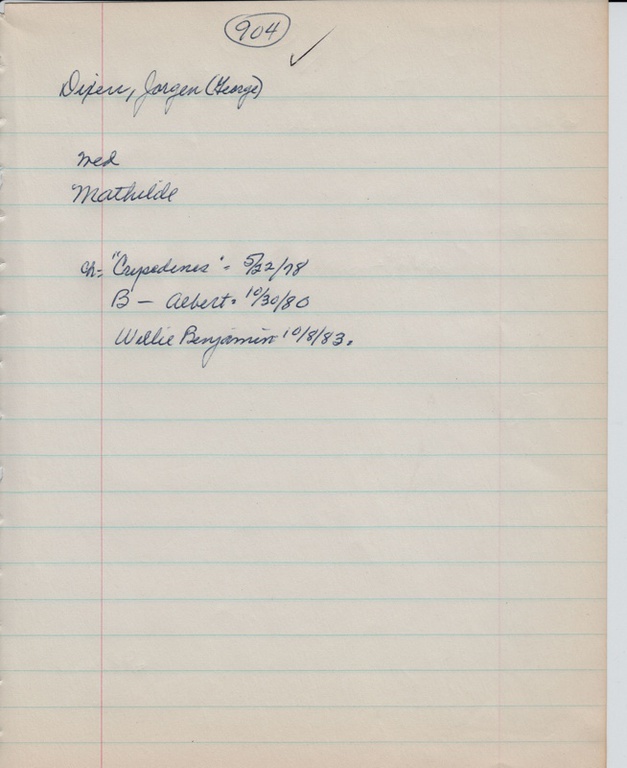 904
Dixen, Jorgen (George)
Wed
Mathilde
Ch= "Crespedines" = 5/22/78
B — Albert = 10/30/80
Willie Benjamin 10/8/83.